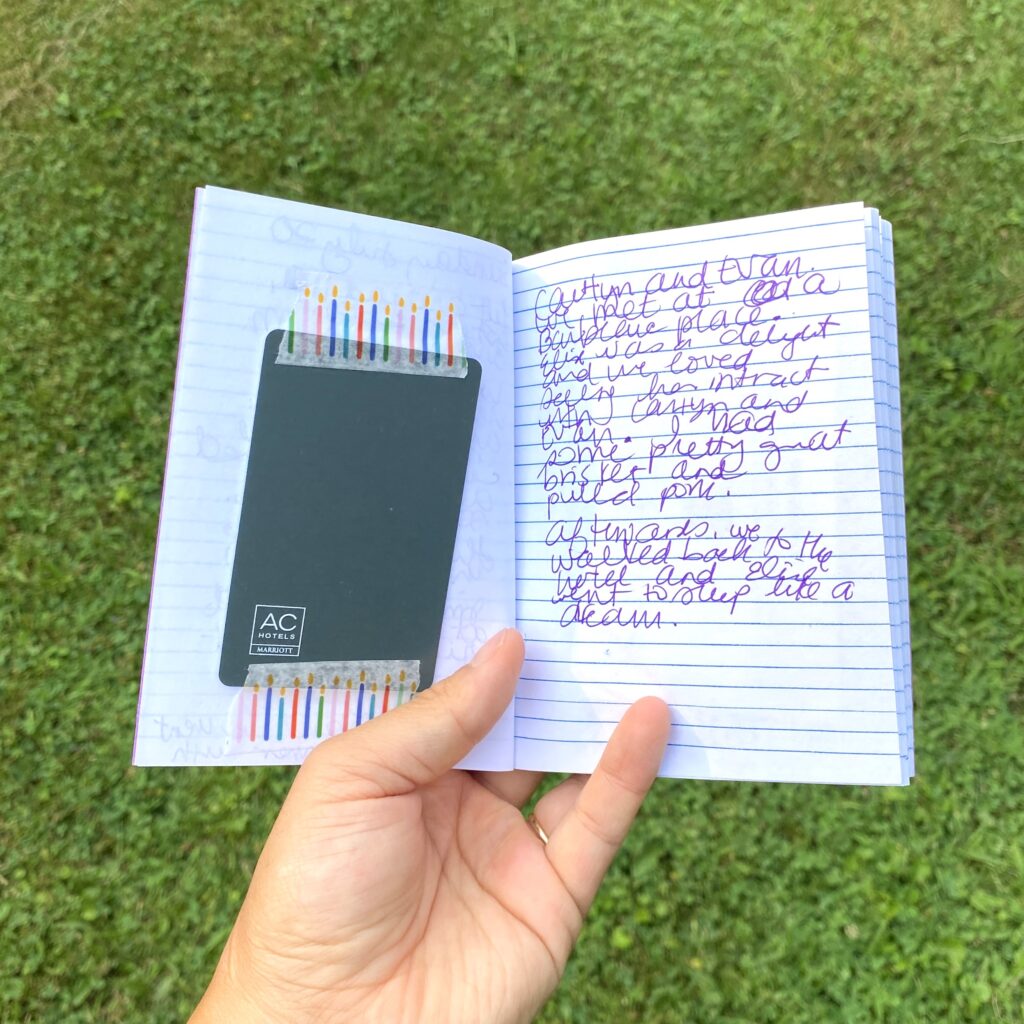 AC
HOTELS
MARRIOTT
Caitlyn and Evan.
We met at a
barbecue place.
was a delight
and we loved
her intract
with Caitlyn and
Evan. I had
some pretty great
brisket and
pulled pork.
Afterwards, we
walked back to the
hotel and
went to sleep like a
dream.